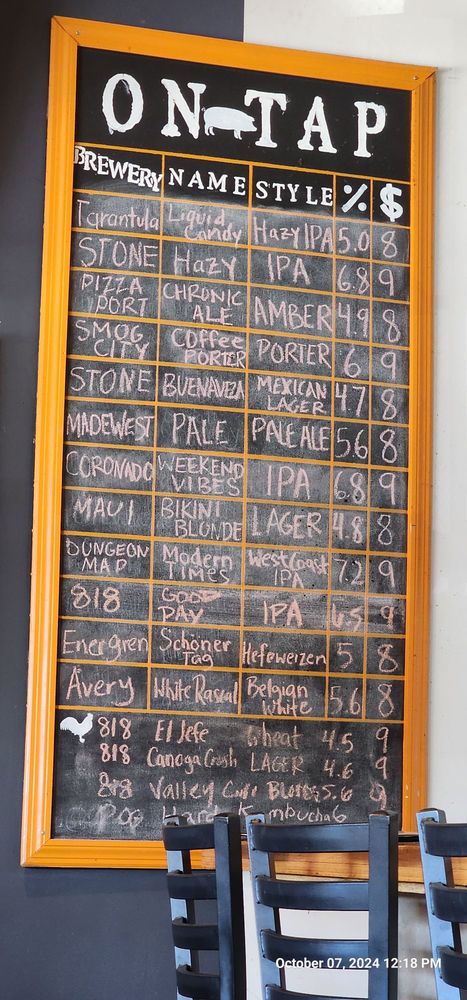 ON TAP
BREWERY NAME STYLE % $
Tarantula Liquid Candy Hazy IPA 5.0 8
STONE Hazy IPA 6.8 9
PIZZA PORT CHRONIC ALE AMBER 4.9 8
SMOG CITY Coffee PORTER PORTER 6 9
STONE BUENAVEZA MEXICAN LAGER 4.7 8
MADEWEST PALE PALE ALE 5.6 8
CORONADO WEEKEND VIBES IPA 6.8 9
MAUI BIKINI BLONDE LAGER 4.8 8
DUNGEON MAP Modern TIMES West Coast IPA 7.2 9
818 GOOD DAY IPA 6.5 9
Enegren Schöner Tag Hefeweizen 5 8
Avery White Rascal Belgian White 5.6 8
818 El Jefe Wheat 4.5 9
818 Canoga Crush LAGER 4.6 9
818 Valley Blonde 5.6 9
Hard Kombucha 6
October 07, 2024 12:18 PM